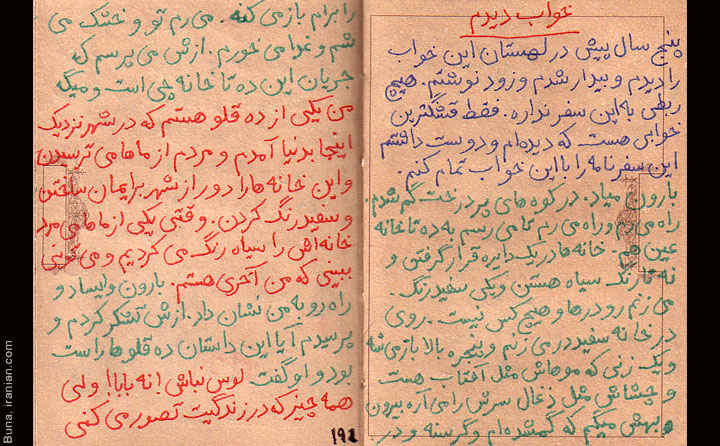 خواب دیدم
پنج سال پیش در لهستان این خواب
را دیدم و بیدار شدم و زود نوشتم. هیچ
ربطی به این سفر نداره. فقط قشنگترین
خوابی هست که دیده‌ام و دوست داشتم
این سفرنامه را با این خواب تمام کنم.
بارون میاد. در کوه های پر درخت گم شدم.
راه می رم و راه می رم تا می رسم به ده تا خانه
عین هم. خانه ها در یک دایره قرار گرفتن و
نه تا رنگ سیاه هستن و یکی سفید رنگ.
می زنم رو درها و هیچ کس نیست. روی
در خانه سفید در می زنم و پنجره بالا باز می شه
و یک زنی که موهاش مثل آفتاب هست
و چشاش مثل ذغال سرش را می آره بیرون
و بهش میگم که گمشده ام و گرسنه و در
را برام باز می کنه. می رم تو و خشک می
شم و غذا می خورم. ازش می پرسم که
جریان این ده تا خانه چی است و میگه
من یکی از ده قلو هستم که در شهر نزدیک
اینجا بدنیا آمدم و مردم از ماها می ترسیدن
و این خانه ها را دور از شهر برایمان ساختن
و سفید رنگ کردن. وقتی یکی از ماها می مرد
خانه اش را سیاه رنگ می کردیم و می تونی
ببینی که من آخری هستم. بارون وایساد و
راه رو به من نشان داد. ازش تشکر کردم و
پرسیدم آیا این داستان ده قلوها راست
بود و او گفت لوس نباش! نه بابا! ولی
همه چیز که در زندگیت تصور می کنی
۱۹۲
Buna, iranian.com